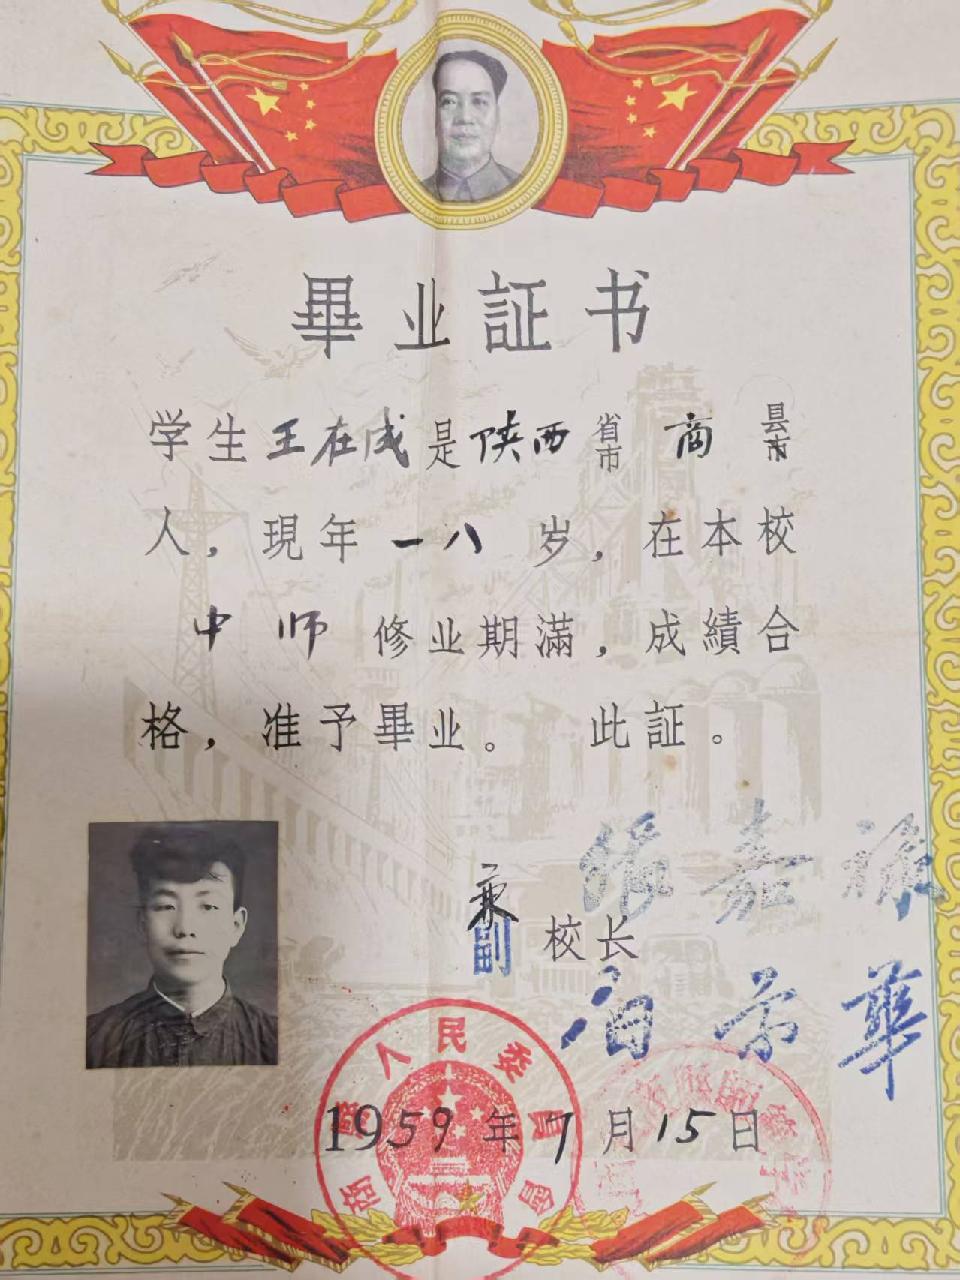 畢业証书
学生王在成是陕西省市商县市
人，現年一八岁，在本校
中师修业期滿，成績合
格，准予畢业。此証。
兼
副校长
張嘉
华
商縣人民委員會
1959年7月15日